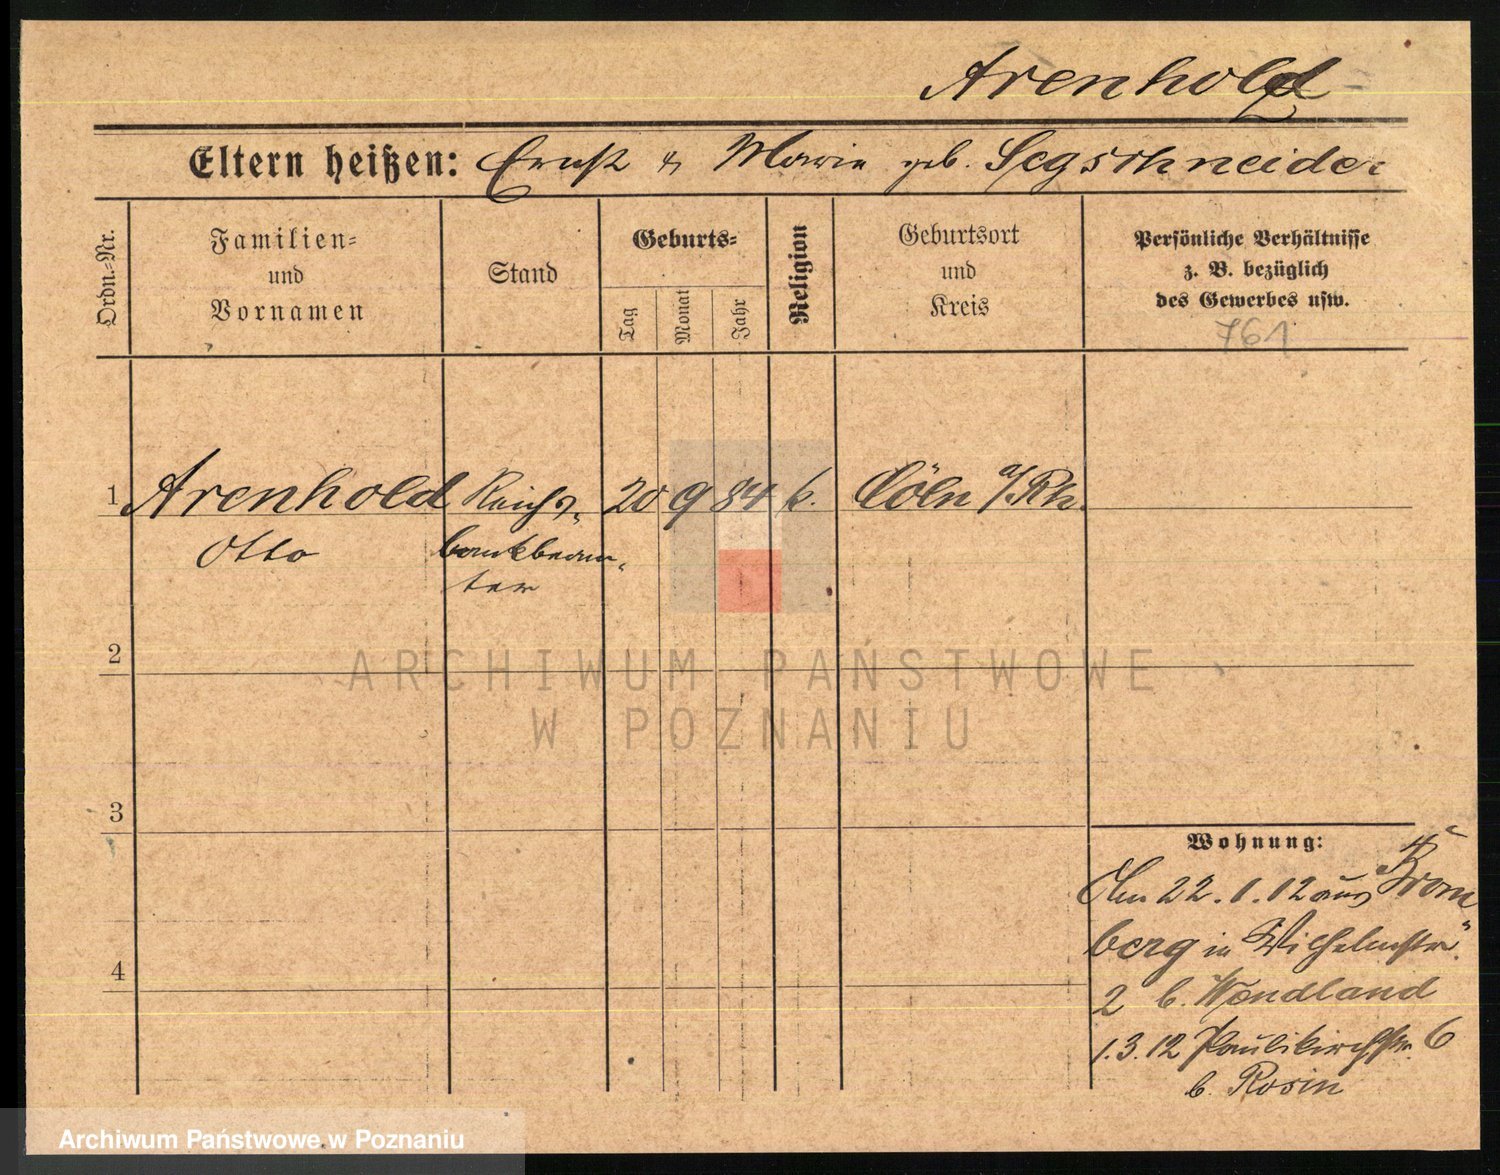 Arenhold
Eltern heißen: Ernst & Marie geb. Segschneider
Ordn.=Nr.
Familien=
und
Vornamen
Stand
Geburts=
Tag
Monat
Jahr
Religion
Geburtsort
und
Kreis
Persönliche Verhältnisse
z. B. bezüglich
des Gewerbes usw.
761
1 Arenhold Reichs= 20 9 84 k. Cöln a/Rh.
Otto bankbeam=
ter
2
ARCHIWUM PAŃSTWOWE
W POZNANIU
3
Wohnung:
Am 22.1.12 aus Brom=
berg in Wilhelmstr.
4
2 b. Wendland
1.3.12 Paulikirchstr. 6
b. Rosin
Archiwum Państwowe w Poznaniu